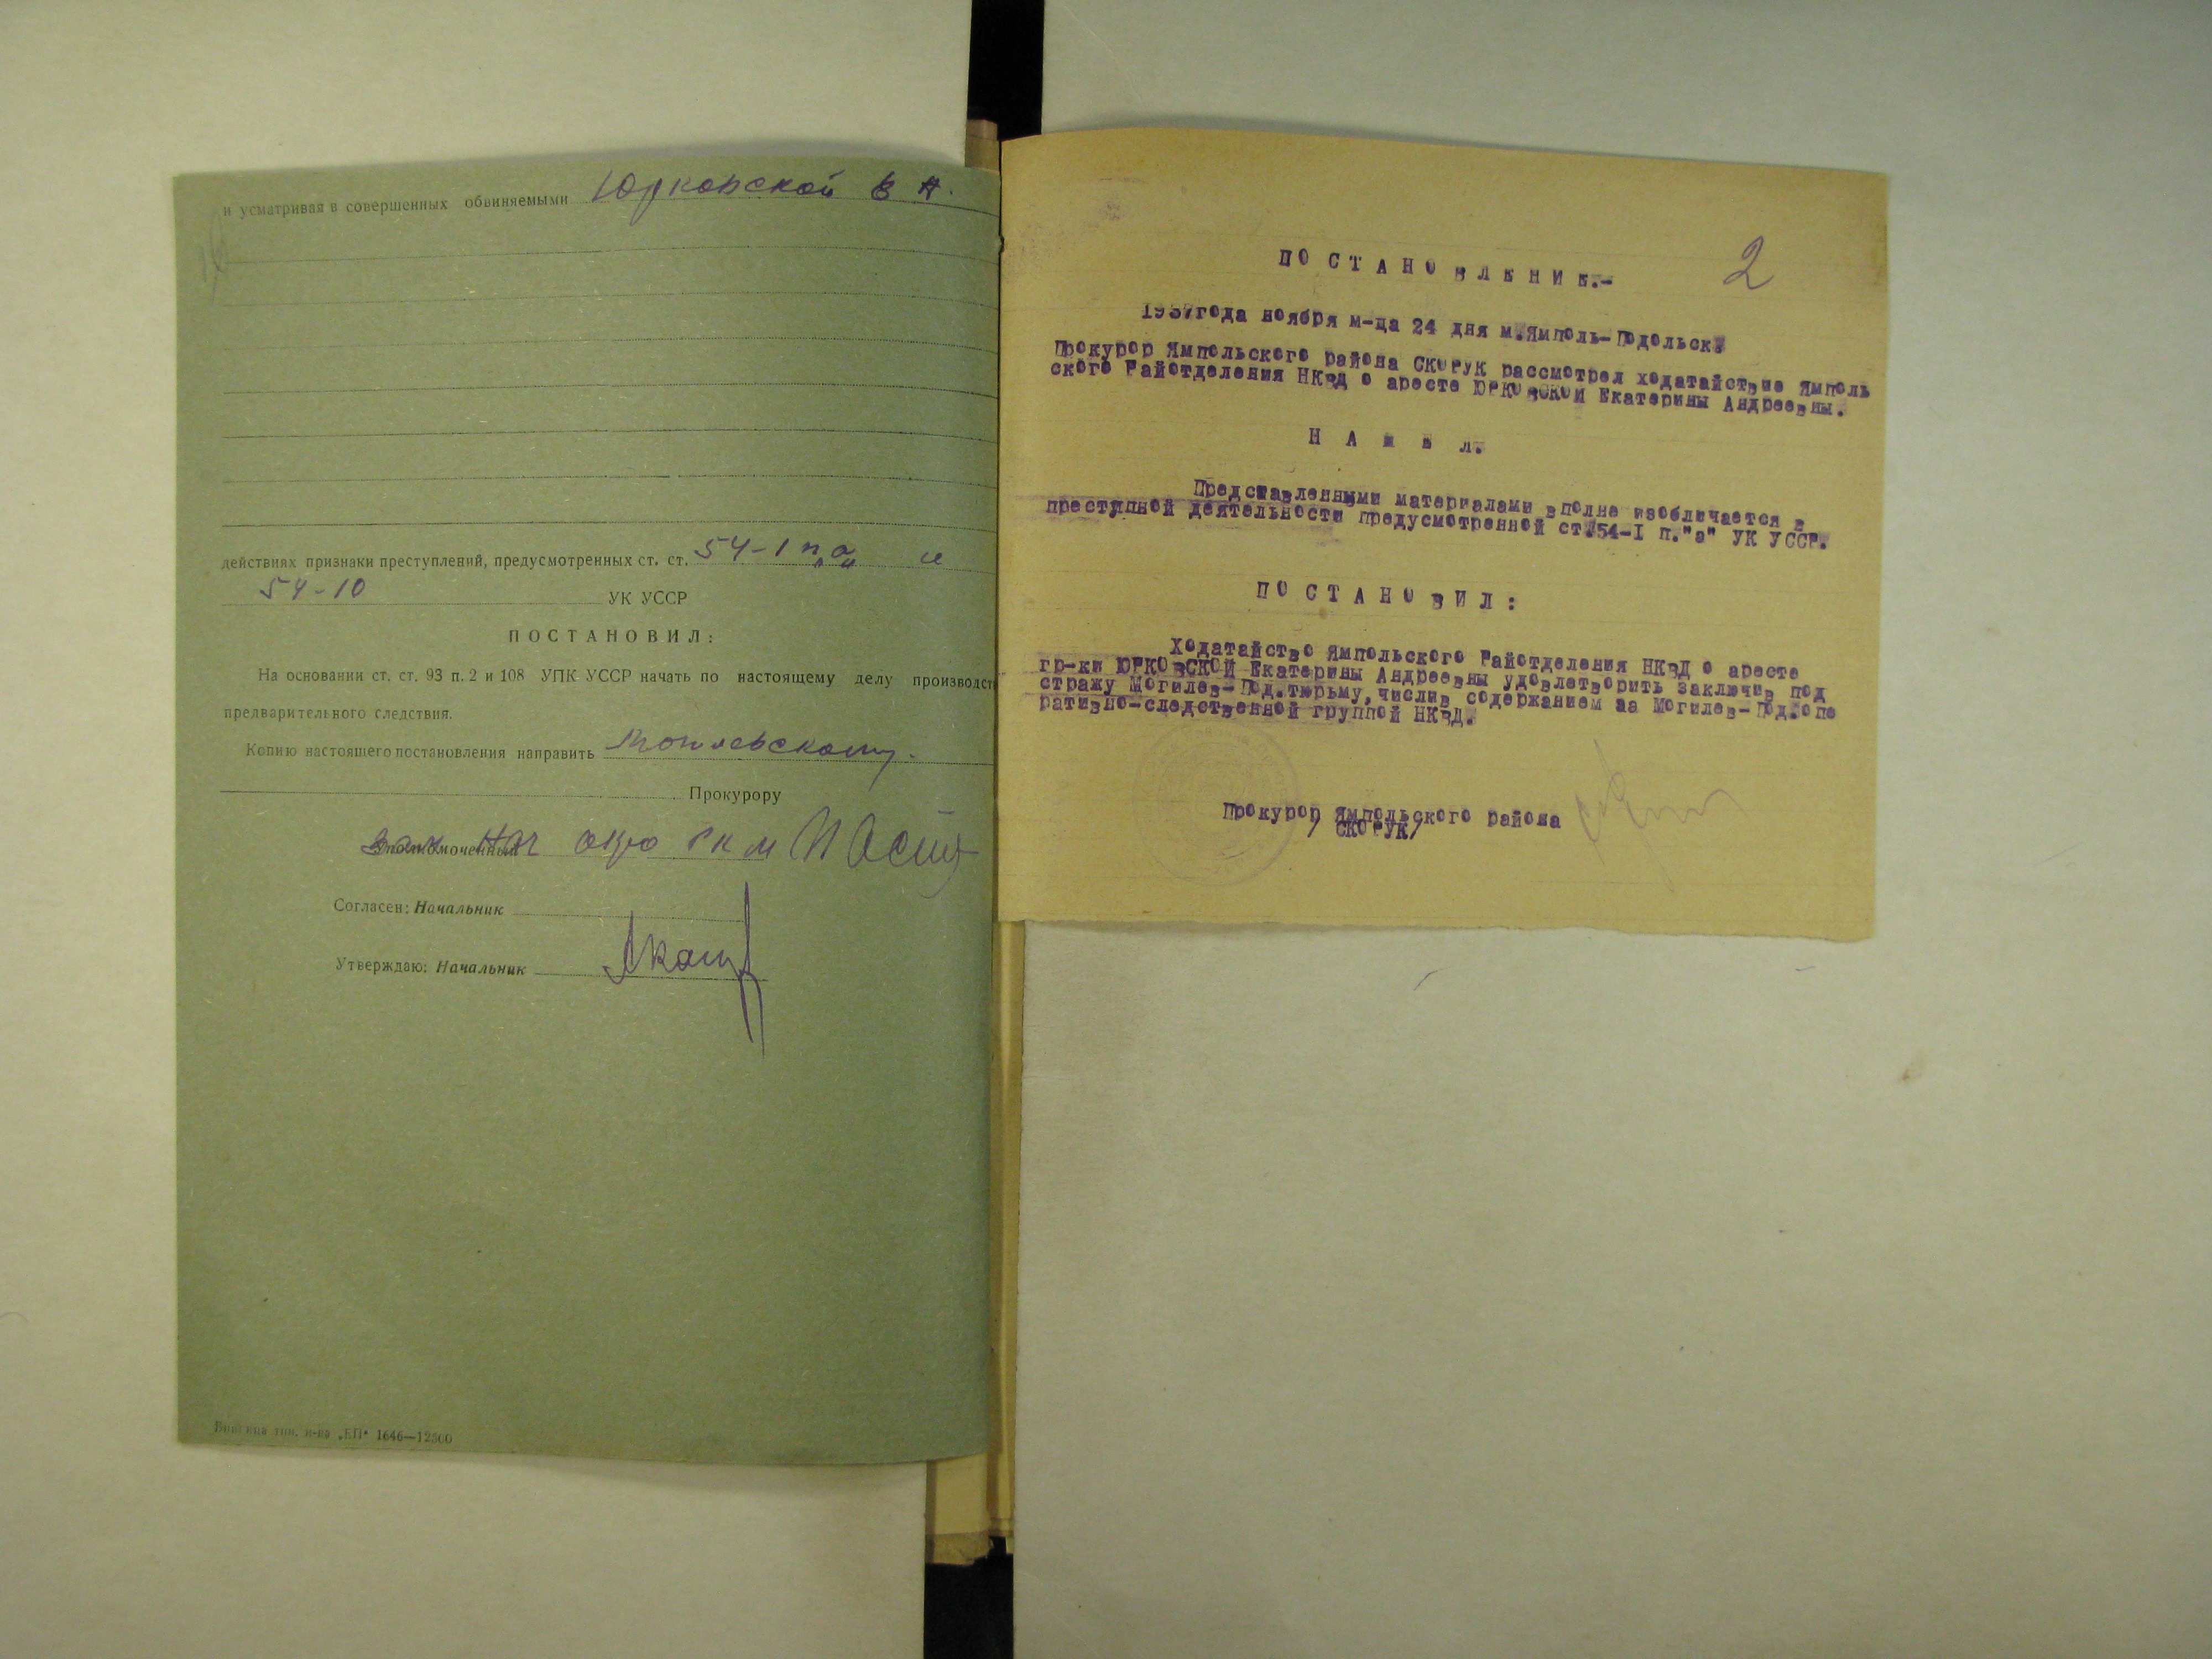 и усматривая в совершенных обвиняемыми Юрковской Е А.
действиях признаки преступлений, предусмотренных ст. ст. 54-1 п "а" и
54-10 УК УССР
ПОСТАНОВИЛ:
На основании ст. ст. 93 п. 2 и 108 УПК УССР начать по настоящему делу производст
предварительного следствия.
Копию настоящего постановления направить Могилевскому.
Прокурору
Нач РКМ
Согласен: Начальник
Утверждаю: Начальник
Винница тип. "ЕП" 1646—12500
2
ПОСТАНОВЛЕНИЕ.-
1937года ноября м-ца 24 дня м.Ямполь-Подольск.
Прокурор Ямпольского района СКОРУК рассмотрел ходатайствие Ямполь
ского Райотделения НКВД о аресте ЮРКОВСКОЙ Екатерины Андреевны.
НАШЕЛ.
Представленными материалами вполне изобличается в
преступной деятельности предусмотренной ст.54-I п."а" УК УССР.
ПОСТАНОВИЛ:
Ходатайство Ямпольского Райотделения НКВД о аресте
гр-ки ЮРКОВСКОЙ Екатерины Андреевны удовлетворить заключив под
стражу Могилев-Под.тюрьму, числив содержанием за Могилев-Под.опе
ративно-следственной группой НКВД.
Прокурор Ямпольского района
/ СКОРУК/